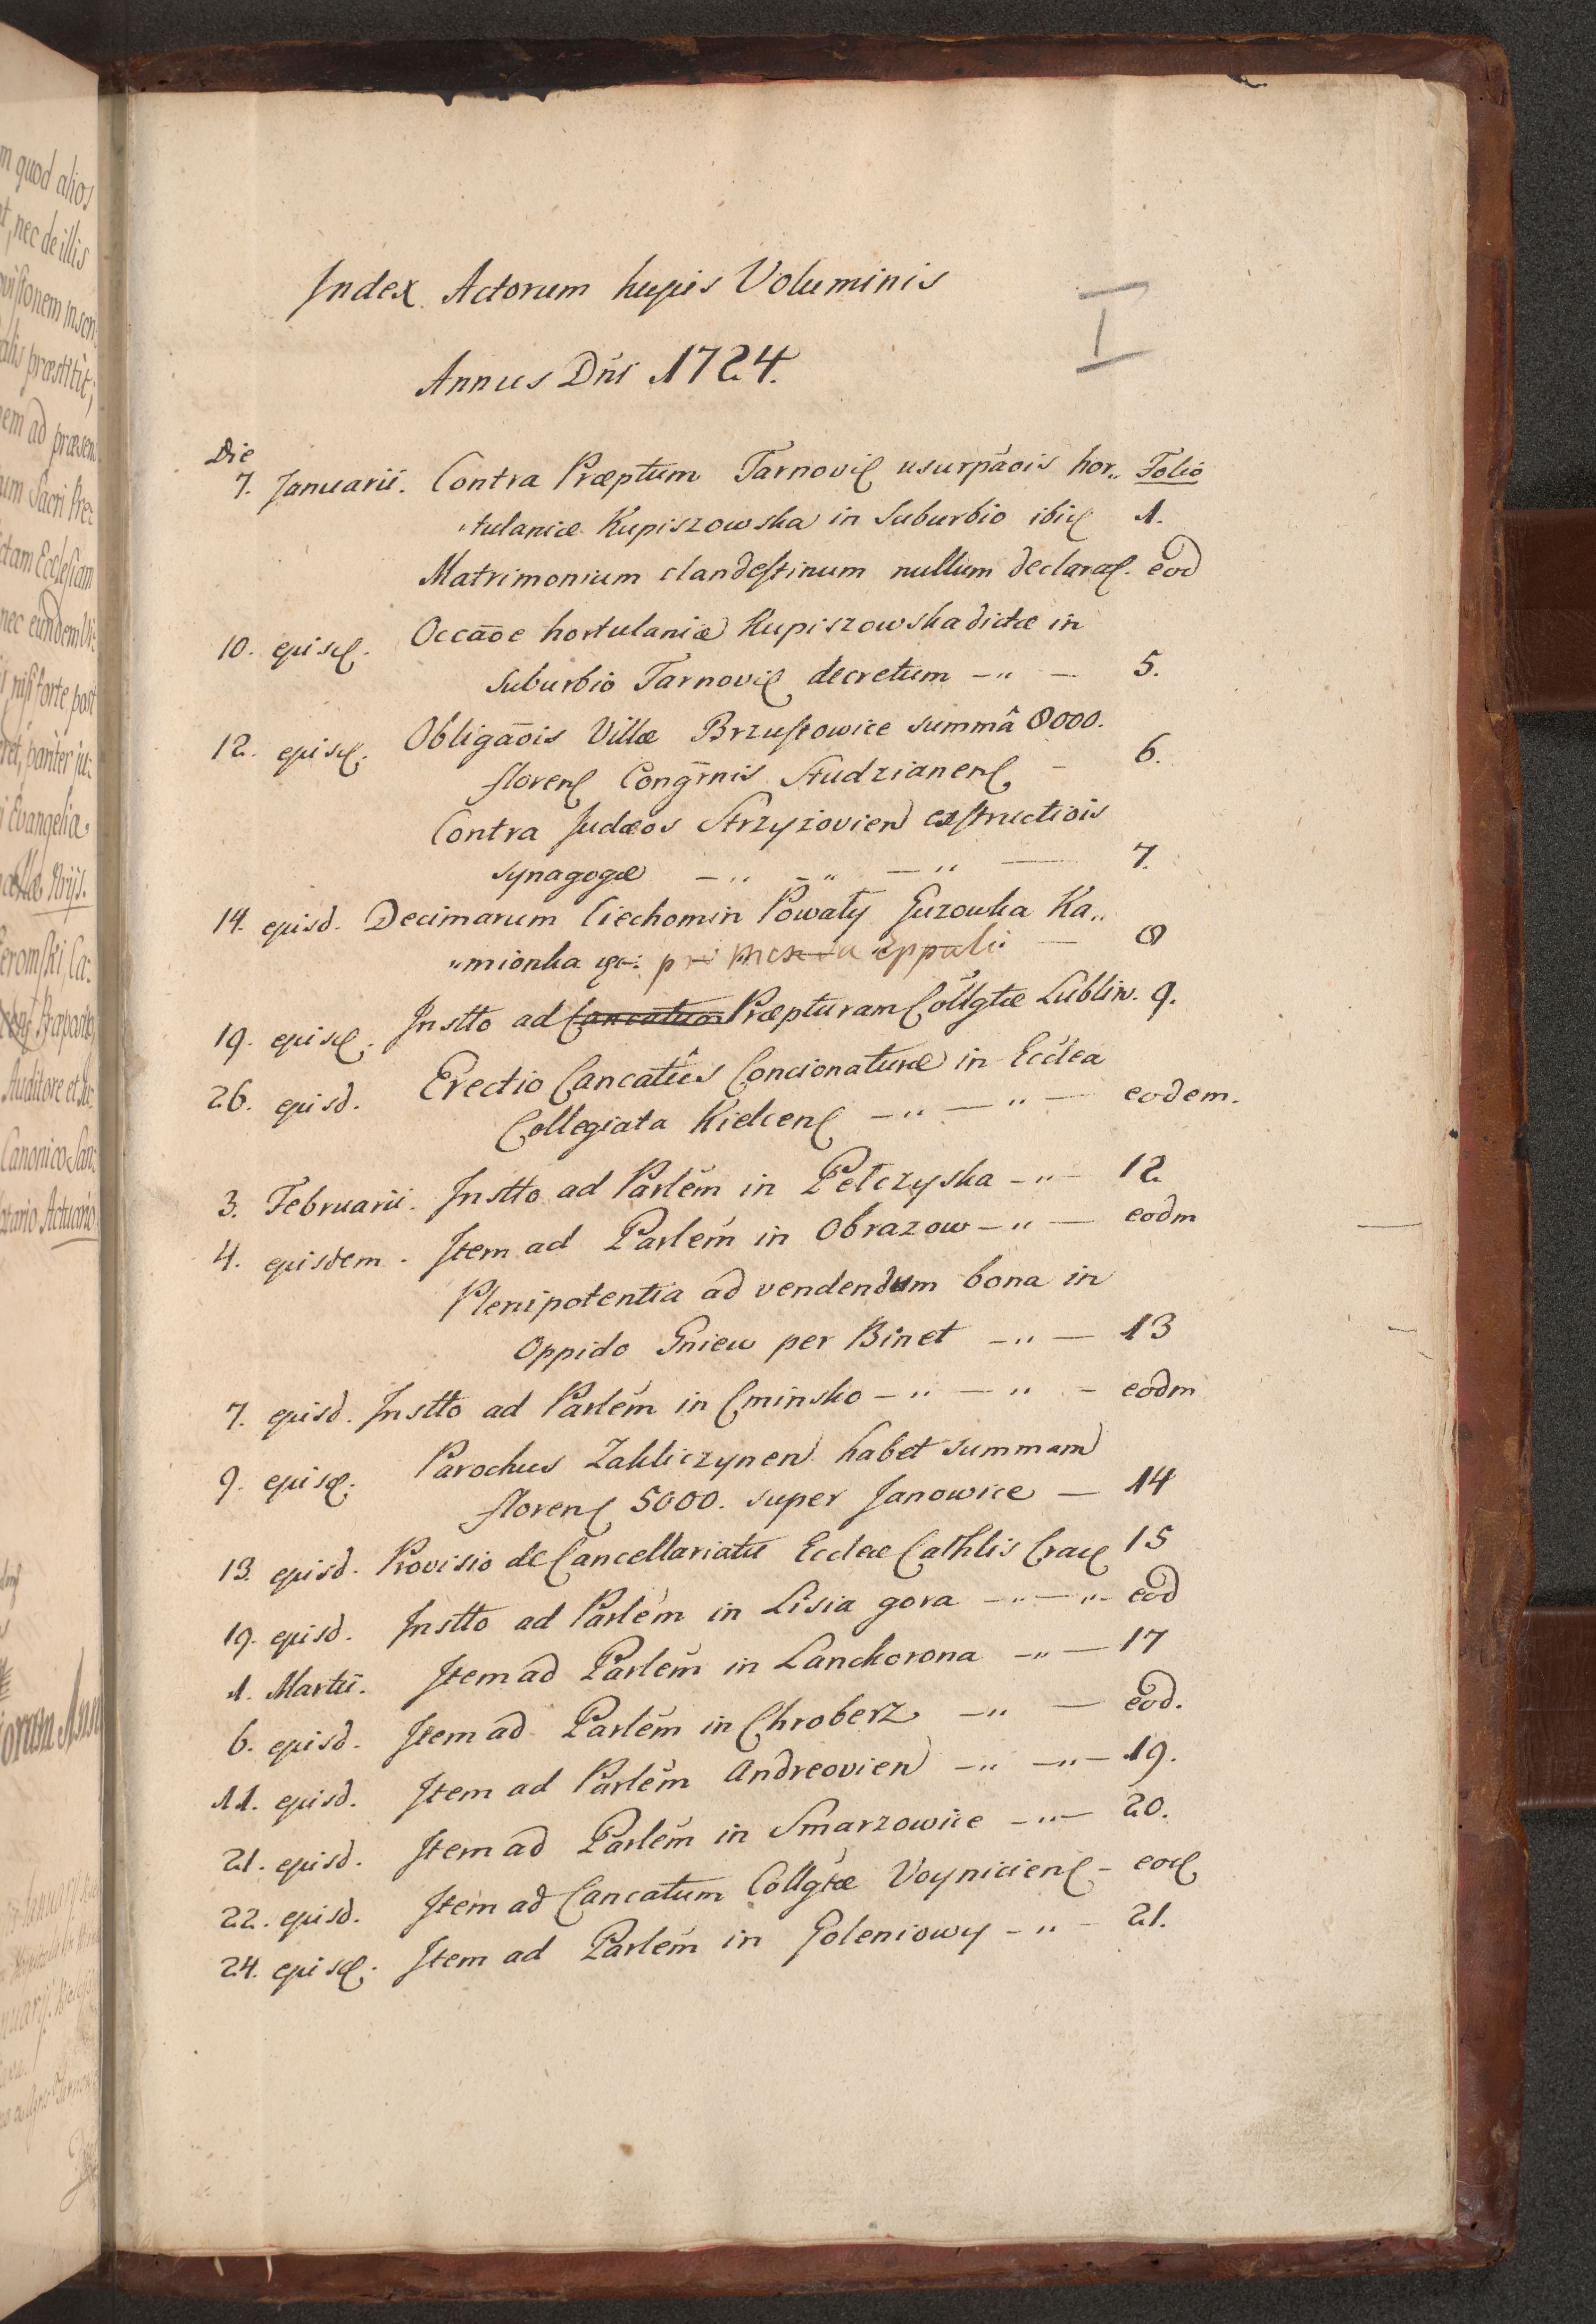 Index Actorum hujus Voluminis
I
Annus Dni 1724.
Die
7. Januarii. Contra Præptum Tarnovi usurpãois hor„ Folio
„tulaniæ Kupiszowska in Suburbio ibi 1.
Matrimonium clandestinum nullum declarat. eod
10. ejusd. Occãoe hortulaniæ Kupiszowska dictæ in
Suburbio Tarnovi decretum — „ — 5.
12. ejusd. Obligãois Villæ Brzustowice summâ 8000.
floren Congrnis Studzianen — 6.
Contra Judæos Strzyzovien exstructiois
synagogæ — „ — „ — „ — 7.
14. ejusd. Decimarum Ciechomin Powały Guzowka Ka„
„mionka pro mensa eppali — 8
19. ejusd. Instto ad Cancatum Præpturam Collgtæ Lublin. 9.
26. ejusd. Erectio Cancatûs Concionaturæ in Ecclea
Collegiata Kielcen — „ — „ — eodem.
3. Februarii. Instto ad Parlem in Pełczyska — „ — 12
4. ejusdem. Item ad Parlem in Obrazow — „ — eodm
Plenipotentia ad vendendum bona in
Oppido Gniew per Binet — „ — 13
7. ejusd. Instto ad Parlem in Cminsko — „ — „ — eodm
9. ejusd. Parochus Zakliczynen habet summam
floren 5000. super Janowice — 14
13. ejusd. Provisio de Cancellariatu Ecclae Cathlis Crac 15
19. ejusd. Instto ad Parlem in Lisia gora — „ — „ — eod
1. Martii. Item ad Parlem in Lanckorona — „ — 17
6. ejusd. Item ad Parlem in Chroberz — „ — eod.
11. ejusd. Item ad Parlem Andreovien — „ — „ — 19.
21. ejusd. Item ad Parlem in Smarzowice — „ — 20.
22. ejusd. Item ad Cancatum Collgtæ Voynicien — eod
24. ejusd. Item ad Parlem in Goleniowy — „ — 21.